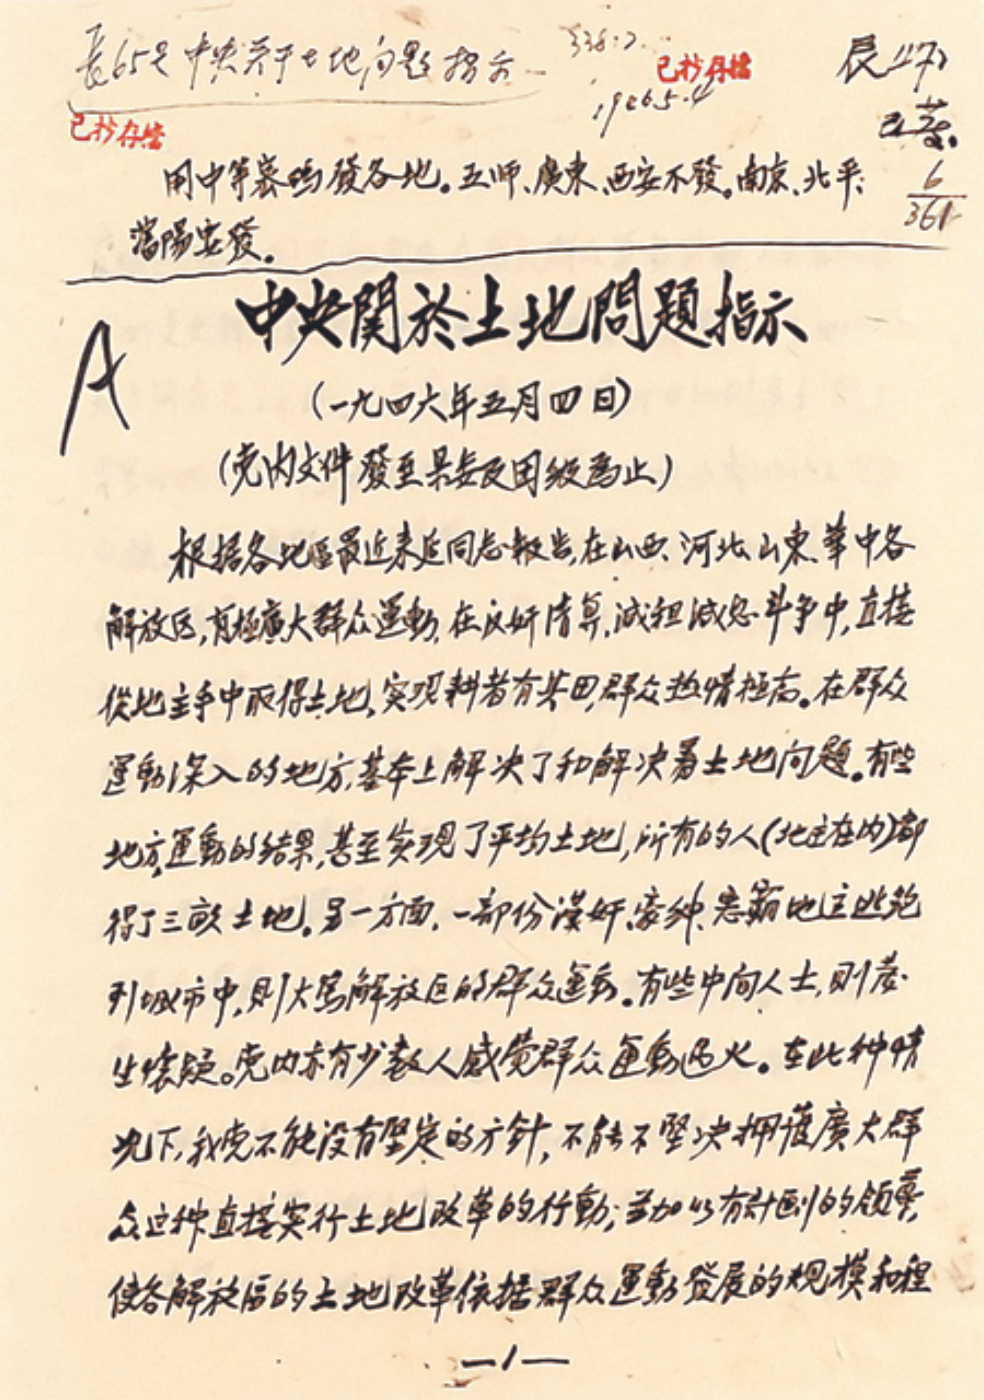 長65号中央关于土地问题指示
338:2
已抄存檔
1946.5.4
已抄存檔
已发
6
361
用中等密碼發各地。五师、廣東、西安不發。南京、北平、
瀋陽要發。
中央関於土地問題指示
A
(一九四六年五月四日)
(党内文件 發至县委及团级爲止)
根据各地區最近来延同志報告,在山西、河北、山東、華中各
解放区,有極廣大群众運動,在反奸清算、減租減息斗争中,直接
從地主手中取得土地,实现耕者有其田,群众热情極高。在群众
運動深入的地方,基本上解决了和解决着土地问題。有些
地方,運動的结果,甚至实现了平均土地,所有的人(地主在内)都
得了三畝土地。另一方面,一部份漢奸、豪绅、恶霸、地主逃跑
到城市中,则大骂解放区的群众運動。有些中间人士,则發
生怀疑。党内亦有少数人感覚群众運動过火。在此种情
况下,我党不能没有堅定的方針,不能不堅决拥護廣大群
众这种直接实行土地改革的行動,并加以有計劃的领導,
使各解放區的土地改革依据群众運動發展的规模和程
—1—